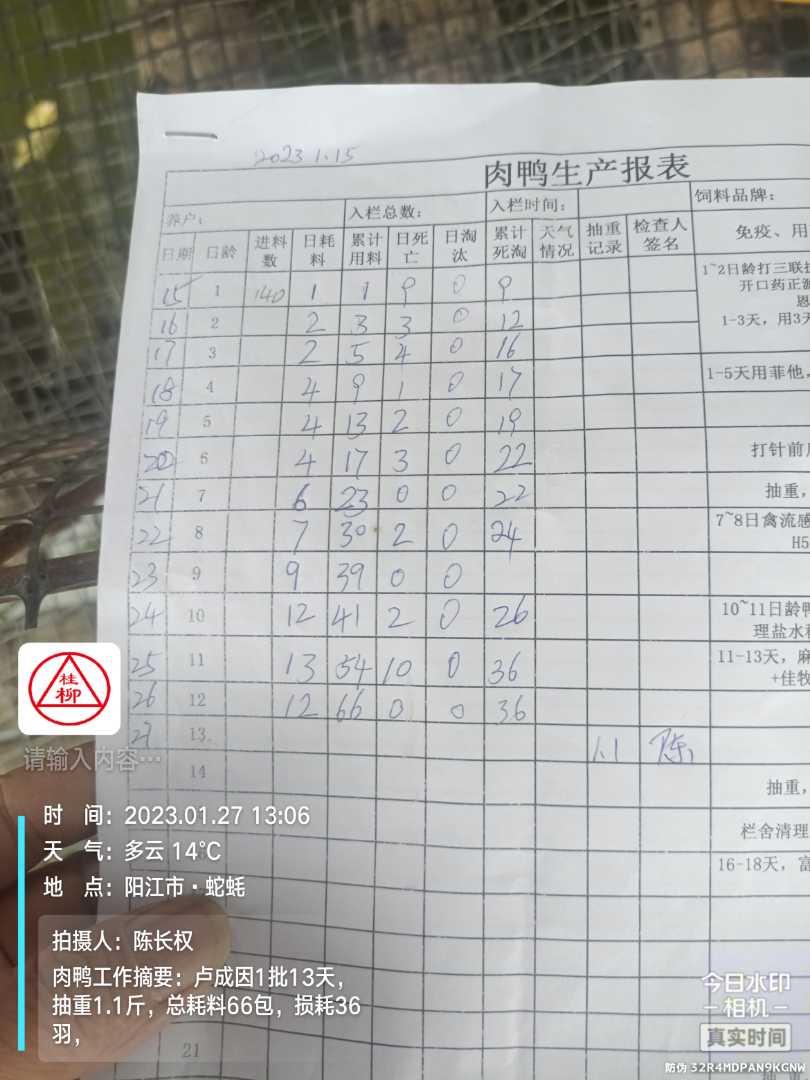 2023.1.15
肉鸭生产报表
养户: 入栏总数: 入栏时间: 饲料品牌:
日期 日龄 进料数 日耗料 累计用料 日死亡 日淘汰 累计死淘 天气情况 抽重记录 检查人签名 免疫、用
15 1 140 1 1 9 0 9 1~2日龄打三联
开口药正
恩
16 2 2 3 3 0 12 1-3天，用3天
17 3 2 5 4 0 16
18 4 4 9 1 0 17 1-5天用菲他，
19 5 4 13 2 0 19
20 6 4 17 3 0 22 打针前
21 7 6 23 0 0 22 抽重，
22 8 7 30 2 0 24 7~8日禽流感
H5
23 9 9 39 0 0
24 10 12 41 2 0 26 10~11日龄鸭
理盐水
25 11 13 54 10 0 36 11-13天，麻
+佳牧
26 12 12 66 0 0 36
27 13 1.1 陈
14 抽重，
栏舍清理
16-18天，富
21
桂柳
请输入内容…
时 间: 2023.01.27 13:06
天 气: 多云 14℃
地 点: 阳江市·蛇蚝
拍摄人: 陈长权
肉鸭工作摘要: 卢成因1批13天，
抽重1.1斤，总耗料66包，损耗36
羽，
今日水印
相机
真实时间
防伪 32R4MDPAN9KGNW